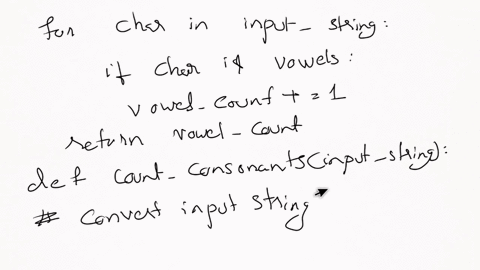 for char in input_string:
if char in vowels:
vowel_count += 1
return vowel_count
def count_consonants(input_string):
# Convert input string